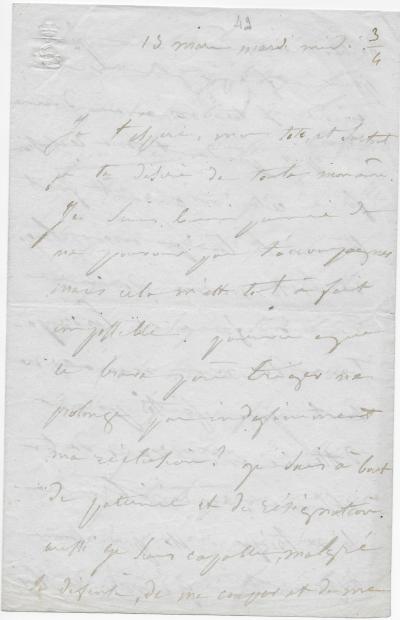 42
13 mars mardi midi 3/4
Je t'espère, mon toto, et surtout
je te désire de toute mon âme.
Je suis bien                 de
ne pouvoir pas t'accompagner
mais cela m'est tout à fait
impossible. pourvu que
ce brave               Triger ne
prolonge pas indéfiniment
ma réclusion ? je suis à bout
de patience et de résignation
aussi je suis capable, malgré
la défense, de me couper et de me